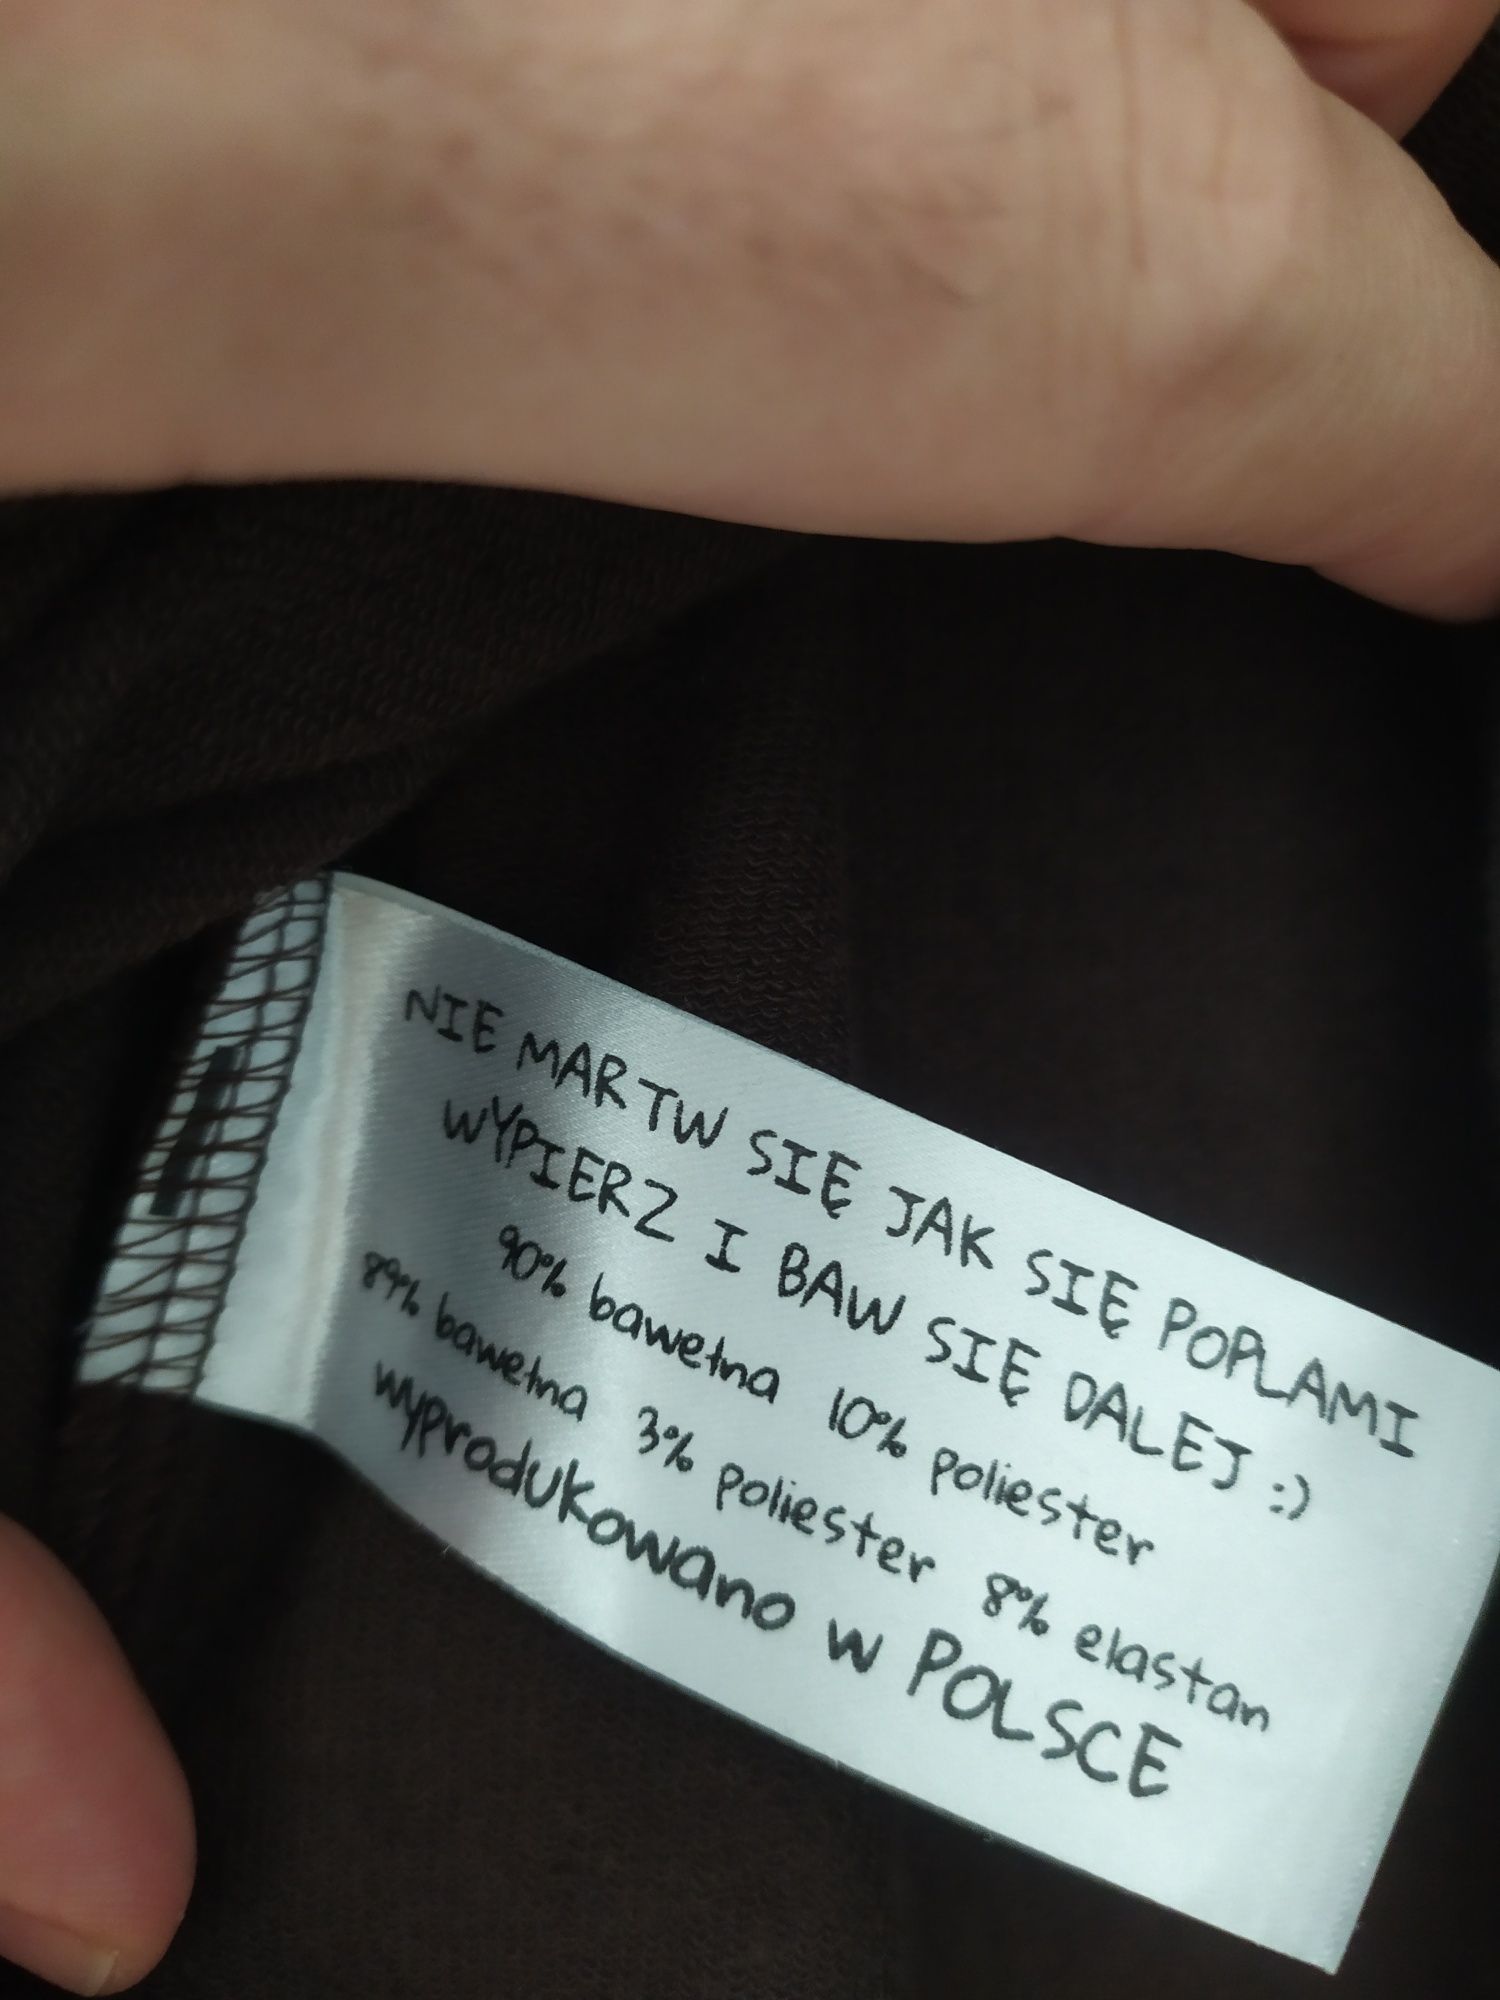 NIE MARTW SIĘ JAK SIĘ POPLAMI
WYPIERZ I BAW SIĘ DALEJ :)
90% bawełna 10% poliester
89% bawełna 3% poliester 8% elastan
wyprodukowano w POLSCE